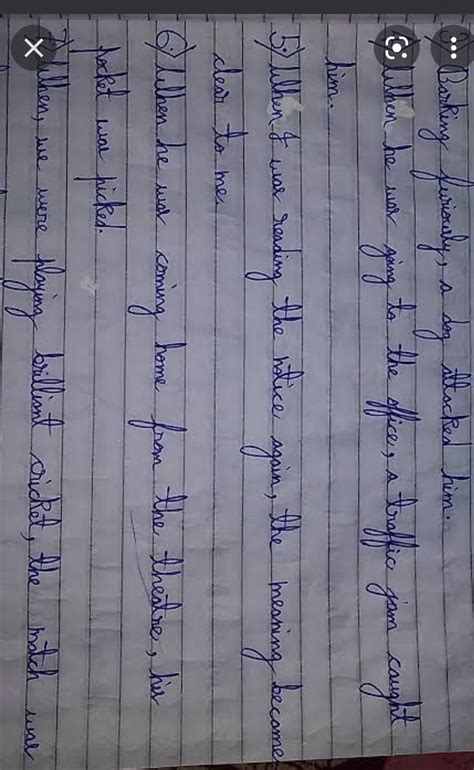 Barking furiously, a dog attacked him.
When he was going to the office, a traffic jam caught
him.
5) When I was reading the notice again, the meaning become
clear to me.
6) When he was coming home from the theatre, his
pocket was picked.
7) When, we were playing brilliant cricket, the match was